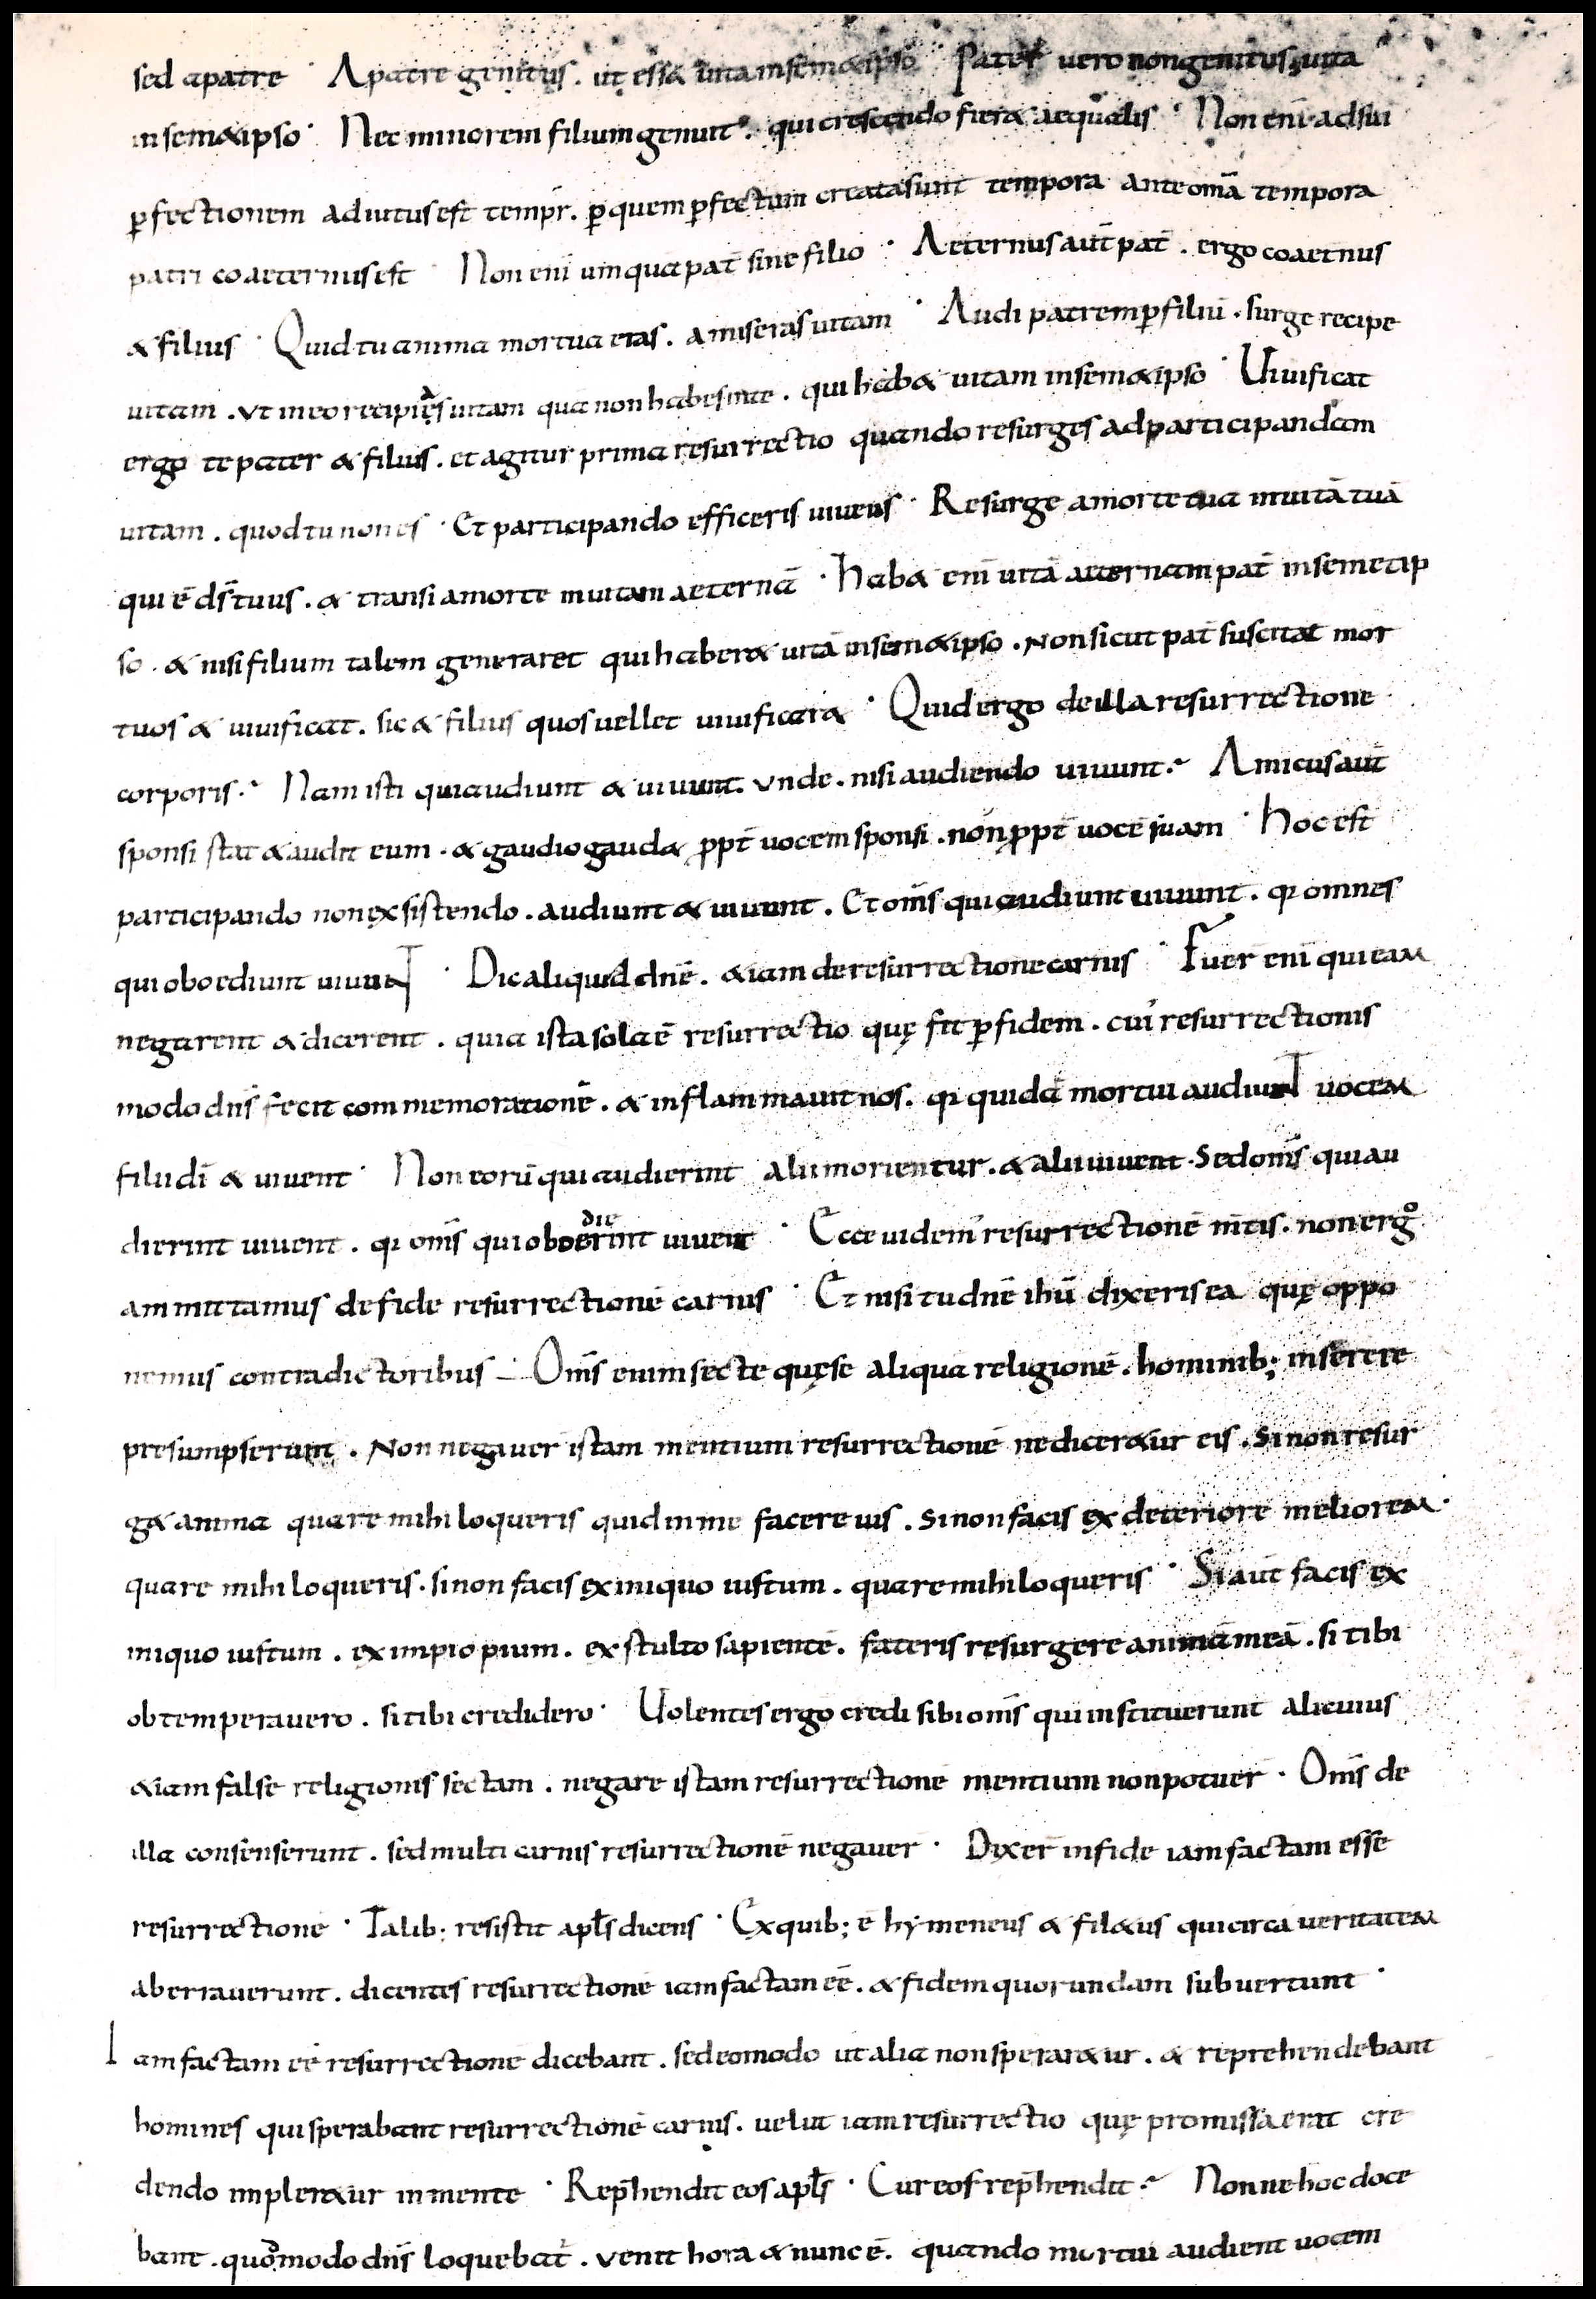 sed apatre · Apatre genitus . ut ess& uita insem&ipso Pater vero non genitus, uita
insem&ipso · Nec minorem filium genuit . qui crescendo fier& aequalis · Non eni adsui
p̱fectionem adiutus est tempr̄ . p̱ quem p̱fectum creata sunt tempora ante omā tempora
patri coaeternus est · Non enī umqua pat̄ sine filio · Aeternus aut̄ pat̄ . ergo coaet̄nus
& filius · Quid tu anima mortua eras . amiseras uitam · Audi patrem p̱ filiū . surge recipe
uitam . ut in eo recipias uitam qua non habes inte . qui hab& uitam insem&ipso · Uiuificat
ergo te pater & filius . et agitur prima resurrectio quando resurges ad participandam
uitam . quod tu non es · Et participando efficeris uiuens · Resurge amorte tua inuitā tuā
qui ē ds̄ tuus . & transi amorte inuitam aeternā · Hab& enī uitā aeternam pat̄ insemetip
so . & nisi filium talem generaret qui haber& uitā insem&ipso . Non sicut pat̄ suscitat mor
tuos & uiuificat . sic & filius quos vellet uiuificar& · Quid ergo de illa resurrectione
corporis .~ Nam isti qui audiunt & uiuunt . unde . nisi audiendo uiuunt .~ Amicus aut̄
sponsi stat & audit eum . & gaudio gaud& p̱pt̄ uocem sponsi . non p̱pt̄ uocē suam · Hoc est
participando non exsistendo . audiunt & uiuunt . Et om̄s qui audiunt uiuunt . qi omnes
qui oboediunt uiuuNT · Dic aliquid dn̄e . & iam de resurrectione carnis · Fuer̄ enī qui eam
negarent & dicerent . quia ista sola ē resurrectio quę fit p̱ fidem . cui' resurrectionis
modo dn̄s fecit commemorationē . & inflammauit nos . qi quidā mortui audiuNT uocem
filii dī & uiuent · Non eorū qui audierint alii morientur . & alii uiuent . Sed om̄s qui au
dierint uiuent . qi om̄s qui oboedierint uiuent · Ecce uidem' resurrectionē m̄tis . non ergo
ammittamus de fide resurrectionē carnis · Et nisi tu dn̄e ihū dixeris ea quę oppo
nemus contradictoribus — Om̄s enim secte quę se aliqua religionē . hominib; inserere
presumpserunt . Non negauer̄ istam mentium resurrectionē ne dicer&ur eis . Si non resur
g& anima quare mihi loqueris quid in me facere uis . Si non facis ex deteriore meliorem .
quare mihi loqueris . si non facis ex iniquo iustum . quare mihi loqueris · Si aut̄ facis ex
iniquo iustum . ex impio pium . ex stulto sapientē . fateris resurgere animā meā . si tibi
obtemperauero . si tibi credidero · Uolentes ergo credi sibi om̄s qui instituerunt alicuius
&iam false religionis sectam . negare istam resurrectionē mentium non potuer̄ · Om̄s de
illa consenserunt . sed multi carnis resurrectionē negauer̄ · Dixer̄ in fide iam factam esse
resurrectione · Talib; resistit apl̄s dicens · Ex quib; ē hymeneus & fil&us qui circa ueritatem
aberrauerunt . dicentes resurrectionē iam factam eē . & fidem quorundam subuertunt ·
Iam factam eē resurrectionē dicebant . sed eo modo ut alia non sperar&ur . & reprehendebant
homines qui sperabant resurrectionē carnis . uelut iam resurrectio quę promissa erat cre
dendo impler&ur in mente · Rep̄hendit eos apl̄s · Cur eos rep̄hendit .~ Nonne hoc doce
bant . quomodo dn̄s loquebat' . Venit hora & nunc ē . quando mortui audient uocem